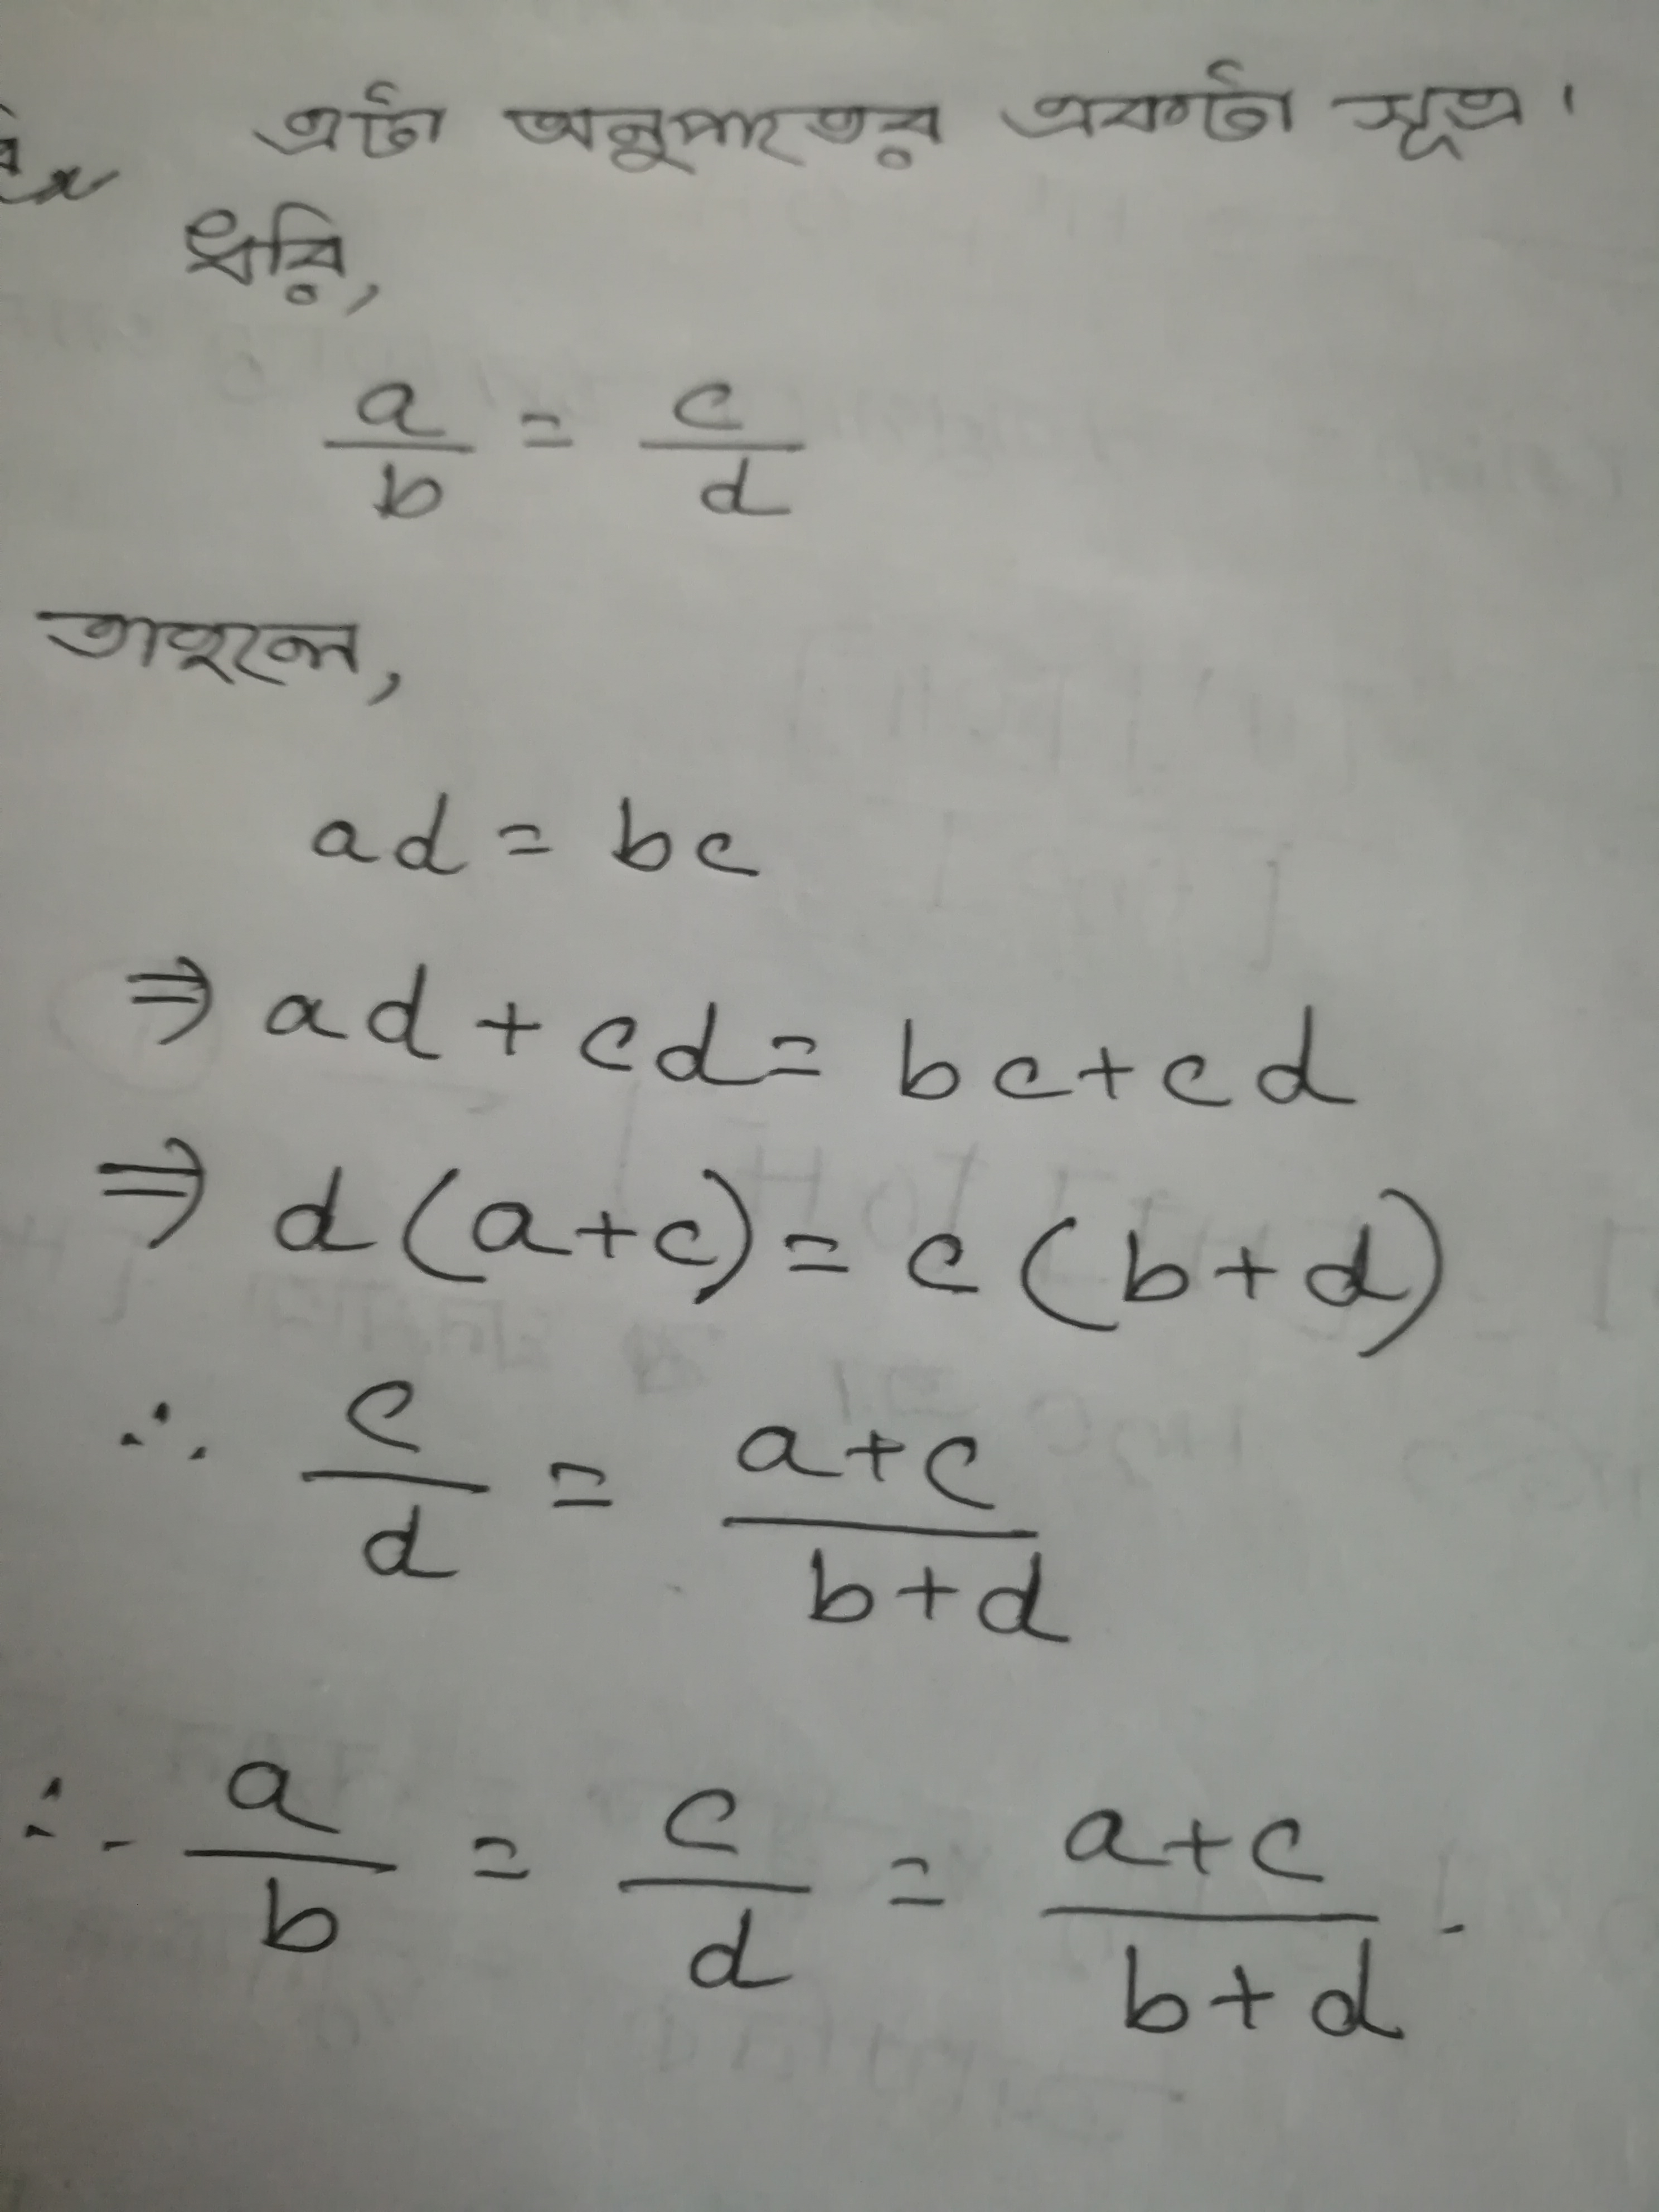 এটা অনুপাতের একটা সূত্র।
ধরি,
a/b = c/d
তাহলে,
ad = bc
⇒ ad + cd = bc + cd
⇒ d(a+c) = c(b+d)
∴ c/d = a+c/b+d
∴ a/b = c/d = a+c/b+d .